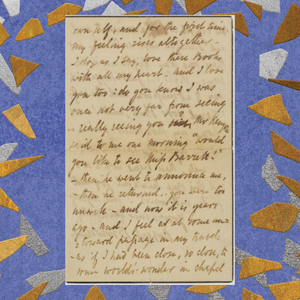 own self, and for the first time,
my feeling rises altogether.
I do, as I say, love these Books
with all my heart - and I love
you too: do you know I was
once not very far from seeing
- really seeing you? Mr Kenyon
said to me one morning "would
you like to see Miss Barrett?"
- then he went to announce me,
- then he returned.. you were too
unwell - and now it is years
ago - and I feel as at some un-
toward passage in my travels
- as if I had been close, so close, to
some world's wonder in chapel